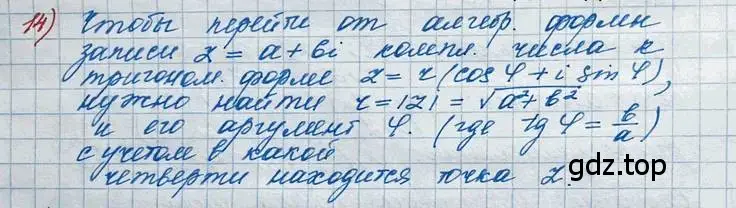 14) Чтобы перейти от алгебр. формы
записи z = a + bi компл. числа к
тригоном. форме z = r (cos φ + i sin φ),
нужно найти r = |z| = √a² + b²
и его аргумент φ. (где tg φ = b/a)
с учетом в какой
четверти находится точка z.
gdz.top